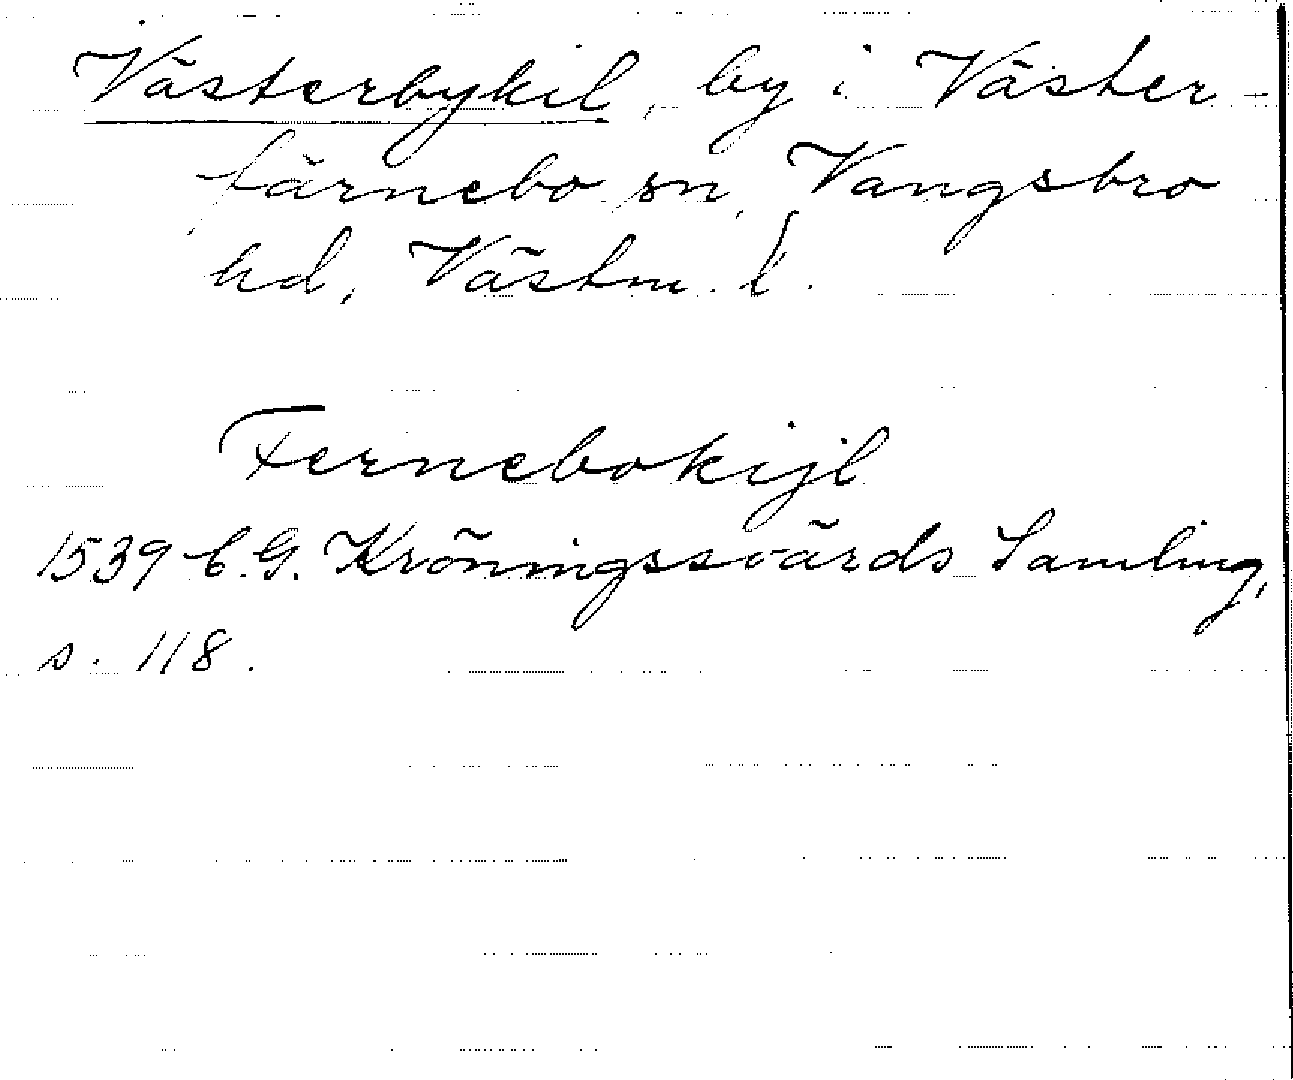 Västerbykil, by i Väster-
färnebo sn, Vangsbro
hd, Västm. l.
Fernebokijl
1539 C.G. Kröningssvärds Samling,
s. 118.